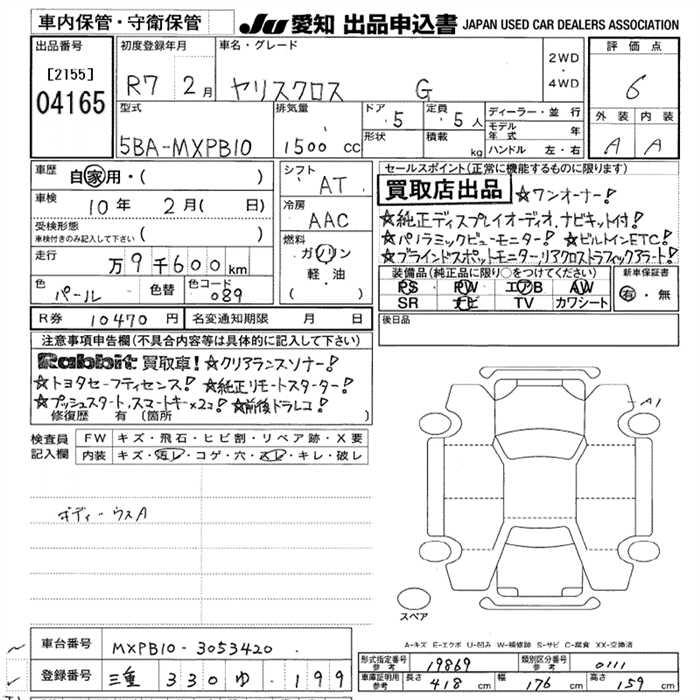 車内保管・守衛保管
JU 愛知 出品申込書 JAPAN USED CAR DEALERS ASSOCIATION
出品番号
[2155]
04165
初度登録年月
R7 2月
車名・グレード
ヤリスクロス G
2WD
・
4WD
評価点
6
外装 内装
A A
型式
5BA-MXPB10
排気量
1500 cc
ドア 5
形状
定員 5人
積載 kg
ディーラー・並行
モデル年式 年
ハンドル 左・右
車歴
自家用・( )
車検
10年 2月( 日)
受検形態
車検付きのみ記入して下さい ( )
走行
万9千600km
色 パール
色替
色コード 089
シフト
AT
冷房
AAC
燃料
ガソリン
軽・油
( )
セールスポイント(正常に機能するものに限ります)
買取店出品 ☆ワンオーナー!
☆純正ディスプレイオーディオ、ナビキット付!
☆パノラミックビューモニター! ☆ビルトインETC!
☆ブラインドスポットモニター、リアクロストラフィックアラート!
装備品(純正品に限り○をつけてください)
PS PW エアB AW
SR ナビ TV カワシート
新車保証書
有・無
後日品
R券 10470円 名変通知期限 月 日
注意事項申告欄(不具合内容等は具体的に記入して下さい)
Rabbit 買取車! ☆クリアランスソナー!
☆トヨタセーフティセンス! ☆純正リモートスターター!
☆プッシュスタート、スマートキー×2コ! ☆前後ドラレコ!
修復歴 有(箇所 )
検査員
記入欄
FW キズ・飛石・ヒビ割・リペア跡・X要
内装 キズ・汚レ・コゲ・穴・スレ・キレ・破レ
ボディーウスA
A1
スペア
A-キズ E-エクボ U-凹み W-補修跡 S-サビ C-腐食 XX-交換済
車台番号 MXPB10-3053420
登録番号 三重 330 ゆ ・199
形式指定番号 参考 19869 類別区分番号 参考 0111
車庫証明用 参考 長さ 418 cm 幅 176 cm 高さ 159 cm